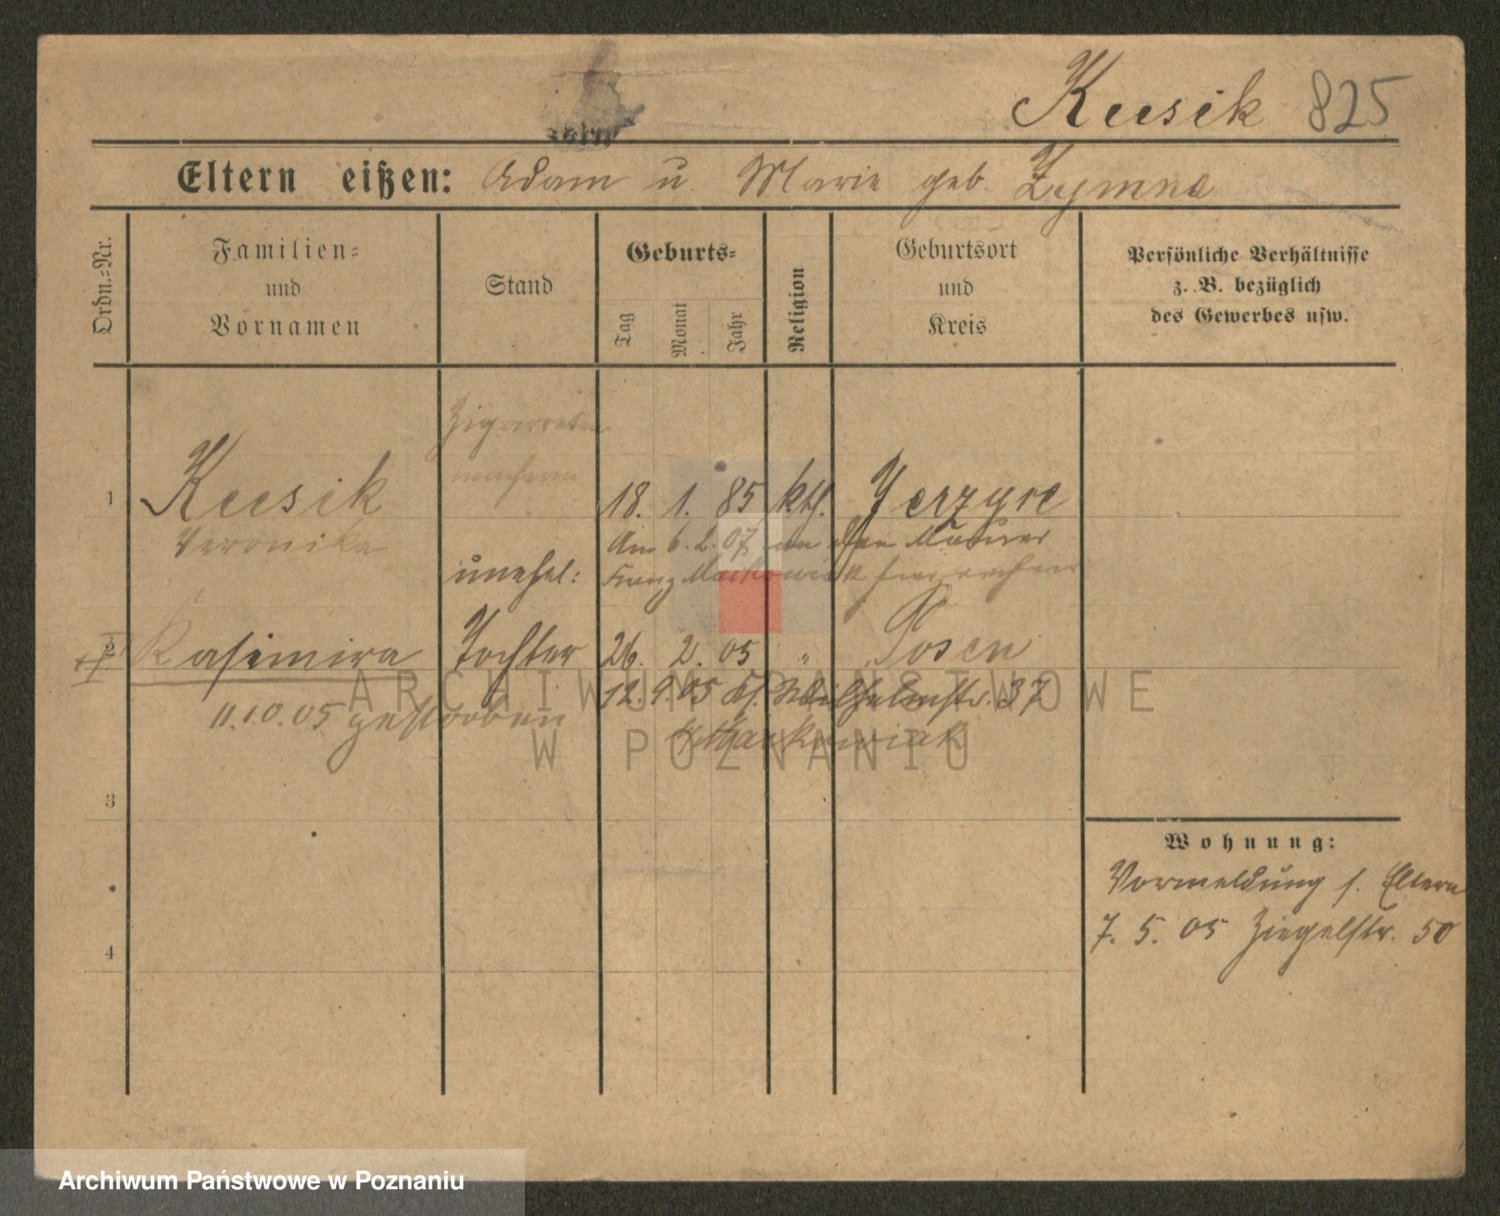 Kusik 825
Eltern eißen: Adam u. Marie geb. Zymna
Ordn.-Nr.
Familien-
und
Vornamen
Stand
Geburts-
Tag
Monat
Jahr
Religion
Geburtsort
und
Kreis
Persönliche Verhältnisse
z. B. bezüglich
des Gewerbes usw.
Zigarreten
macherin
1 Kusik 18. 1. 85 kth. Jerzyce
Veronika
Am 6. 2. 07 an den Maurer
unehel: Franz Markowiak
2 Kasimira Tochter 26. 2. 05 " Posen
12. 9. 05 Wilhelmstr. 37
11.10.05 gestorben
Markowiak
3
4
Wohnung:
Vormeldung s. Eltern
7. 5. 05 Ziegelstr. 50
ARCHIWUM PAŃSTWOWE
W POZNANIU
Archiwum Państwowe w Poznaniu